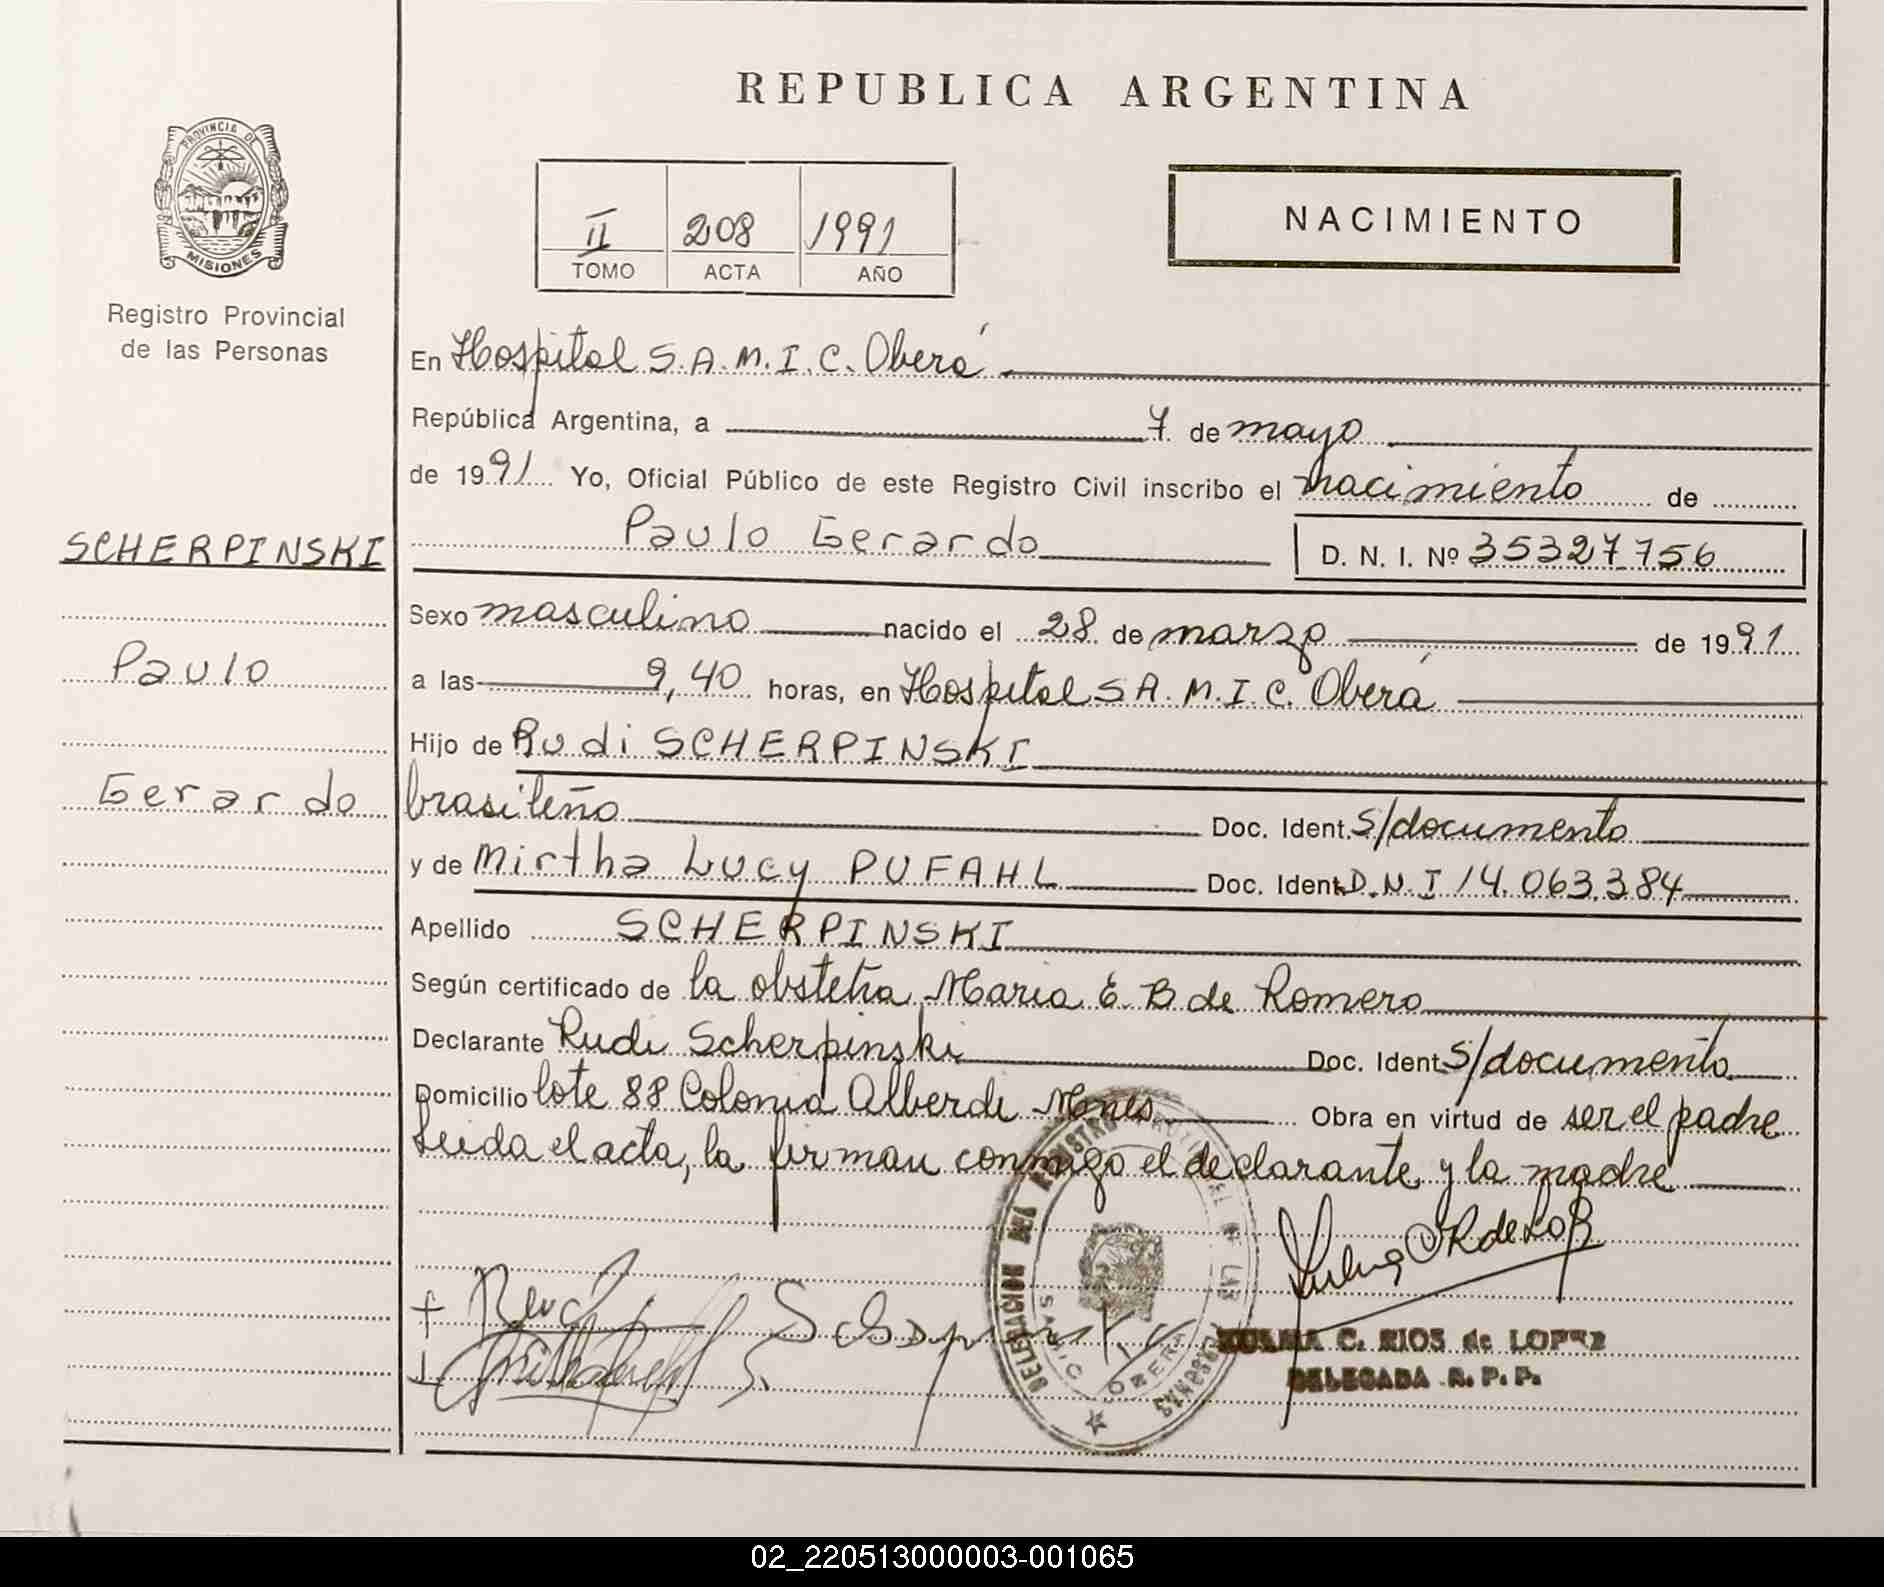 REPUBLICA ARGENTINA
PROVINCIA DE
MISIONES
Registro Provincial
de las Personas
II 208 1991
TOMO ACTA AÑO
NACIMIENTO
En Hospital S.A.M.I.C. Oberá
República Argentina, a 7 de mayo
de 1991 Yo, Oficial Público de este Registro Civil inscribo el nacimiento de
SCHERPINSKI
Paulo Gerardo D. N. I. Nº 35327756
Sexo masculino nacido el 28 de marzo de 1991
Paulo
a las 9,40 horas, en Hospital S A. M. I. C. Oberá
Hijo de Rudi SCHERPINSKI
Gerardo
brasileño Doc. Ident. S/documento
y de Mirtha Lucy PUFAHL Doc. Ident. D.N.I 14.063.384
Apellido SCHERPINSKI
Según certificado de la obstetra Maria E. B de Romero
Declarante Rudi Scherpinski Doc. Ident. S/documento
Domicilio lote 88 Colonia Alberdi Mnes Obra en virtud de ser el padre
Leida el acta, la firman conmigo el declarante y la madre
DELEGACION DEL REGISTRO
DE LAS
SAMIC OBERA
MISIONES
ZULMA C. RIOS de LOPEZ
DELEGADA R. P. P.
02_220513000003-001065